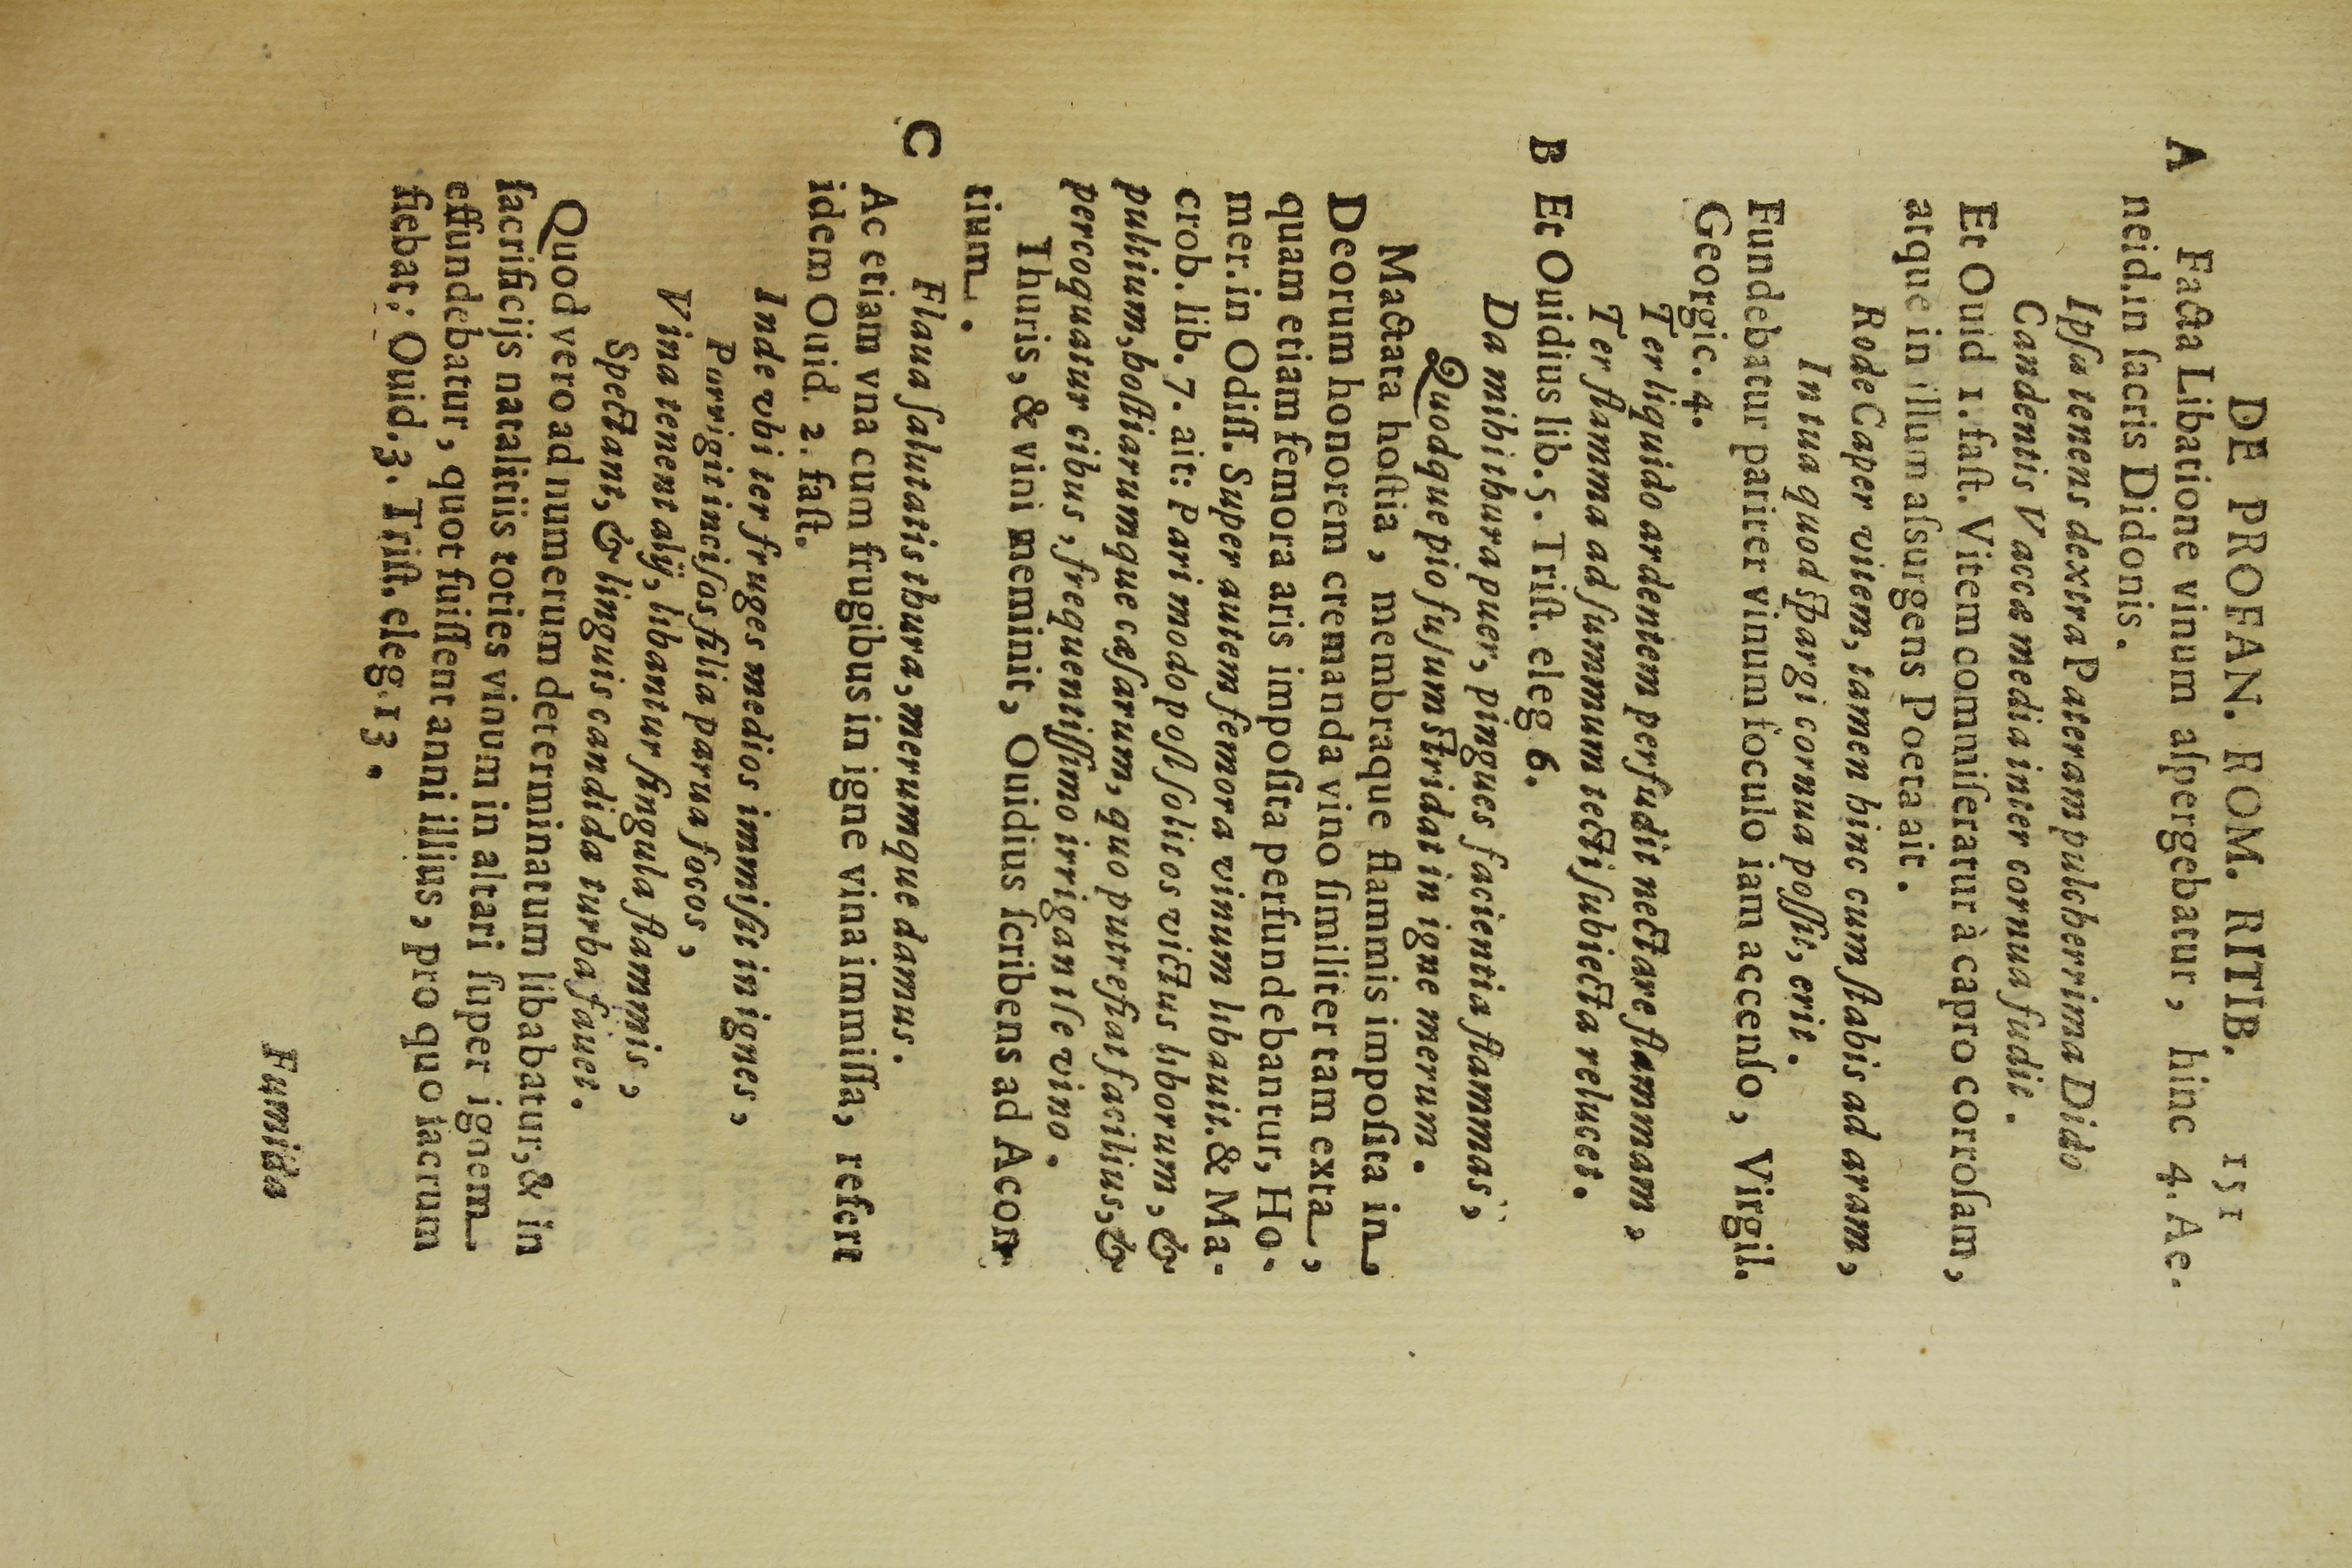 DE PROFAN. ROM. RITIB. 151
A Facta Libatione vinum aſpergebatur, hinc 4. Ae-
neid. in ſacris Didonis.
Ipſa tenens dextra Pateram pulcherrima Dido
Candentis Vaccæ media inter cornua fudit.
Et Ouid 1. faſt. Vitem commiſeratur à capro corroſam,
atque in illum aſsurgens Poeta ait.
Rode Caper vitem, tamen hinc cum ſtabis ad aram,
In tua quod ſpargi cornua poſſit, erit.
Fundebatur pariter vinum foculo iam accenſo, Virgil.
Georgic. 4.
Ter liquido ardentem perfudit nectare flammam,
Ter flamma ad ſummum tecti ſubiecta relucet.
B Et Ouidius lib. 5. Triſt. eleg 6.
Da mihi thura puer, pingues facientia flammas,
Quodque pio fuſum ſtridat in igne merum.
Mactata hoſtia, membraque flammis impoſita in
Deorum honorem cremanda vino ſimiliter tam exta,
quam etiam femora aris impoſita perfundebantur, Ho-
mer. in Odiſſ. Super autem femora vinum libauit. & Ma-
crob. lib. 7. ait: Pari modo poſſ ſolitos victus liborum, &
pultium, hoſtiarumque cæſarum, quo putrefiat facilius, &
percoquatur cibus, frequentiſſimo irrigant ſe vino.
Thuris, & vini meminit, Ouidius ſcribens ad Acon-
tium.
C Flaua ſalutatis thura, merumque damus.
Ac etiam vna cum frugibus in igne vina immiſſa, refert
idem Ouid. 2. faſt.
Inde vbi ter fruges medios immiſit in ignes,
Porrigit inciſos filia parua focos,
Vina tenent alij, libantur ſingula flammis,
Spectant, & linguis candida turba fauet.
Quod vero ad numerum determinatum libabatur, & in
ſacrificijs natalitiis toties vinum in altari ſuper ignem
effundebatur, quot fuiſſent anni illius, pro quo ſacrum
fiebat; Ouid. 3. Triſt. eleg. 13.
Fumida